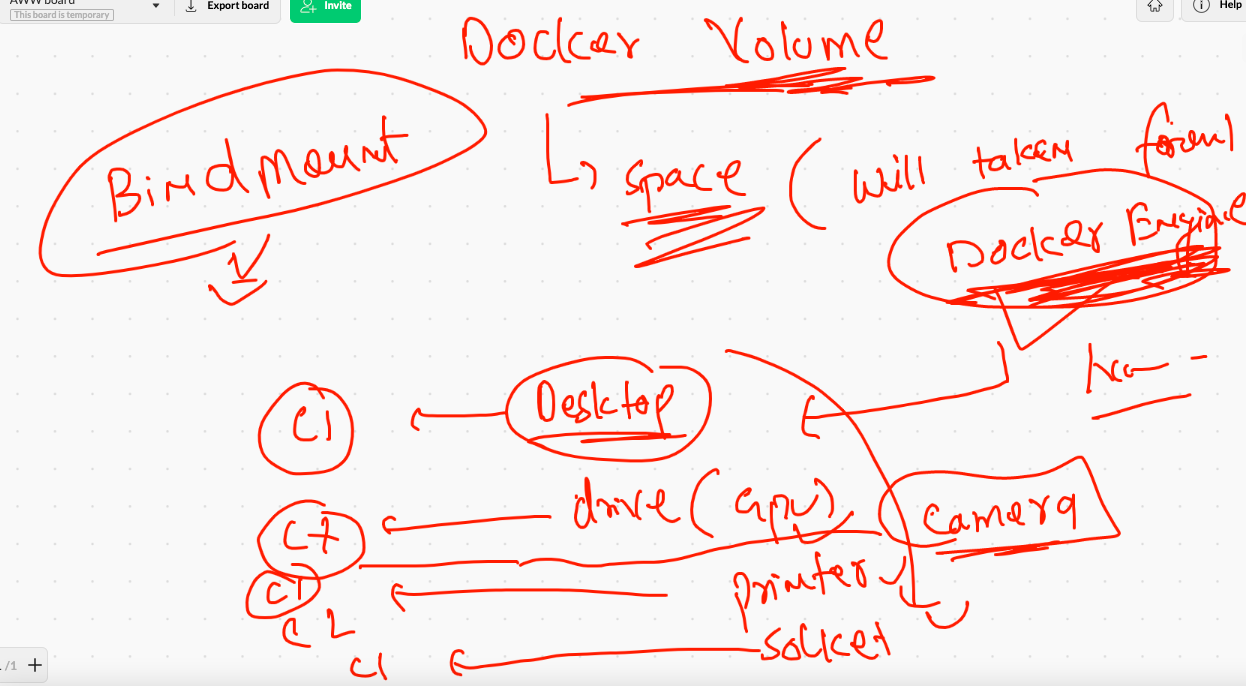 AWW board
This board is temporary
Export board
Invite
Help
Docker Volume
Bind Mount
space ( will taken
Docker Engine
C1
Desktop
drive ( GPU )
Camera
C1
printer
C2
socket
C1
/1 +